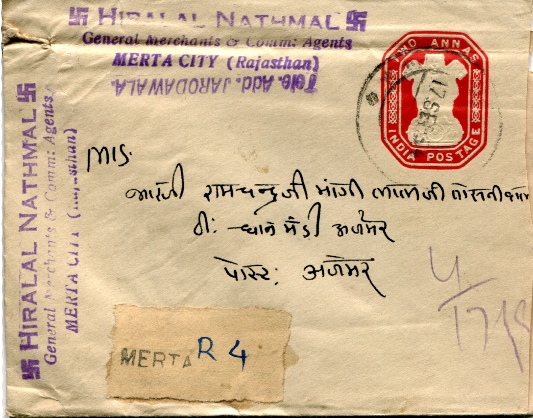 卐 HIRALAL NATHMAL 卐
General Merchants & Comm: Agents
MERTA CITY (Rajasthan)
Tele. Add. JARODAWALA.
TWO ANNAS
INDIA POSTAGE
17 SEP
卐 HIRALAL NATHMAL 卐
General Merchants & Comm: Agents
MERTA CITY (Rajasthan)
M/S.
रामचन्द्रजी मांगी लालजी
ठी: धान मंडी अजमेर
पोस्ट: अजमेर
MERTA R 4